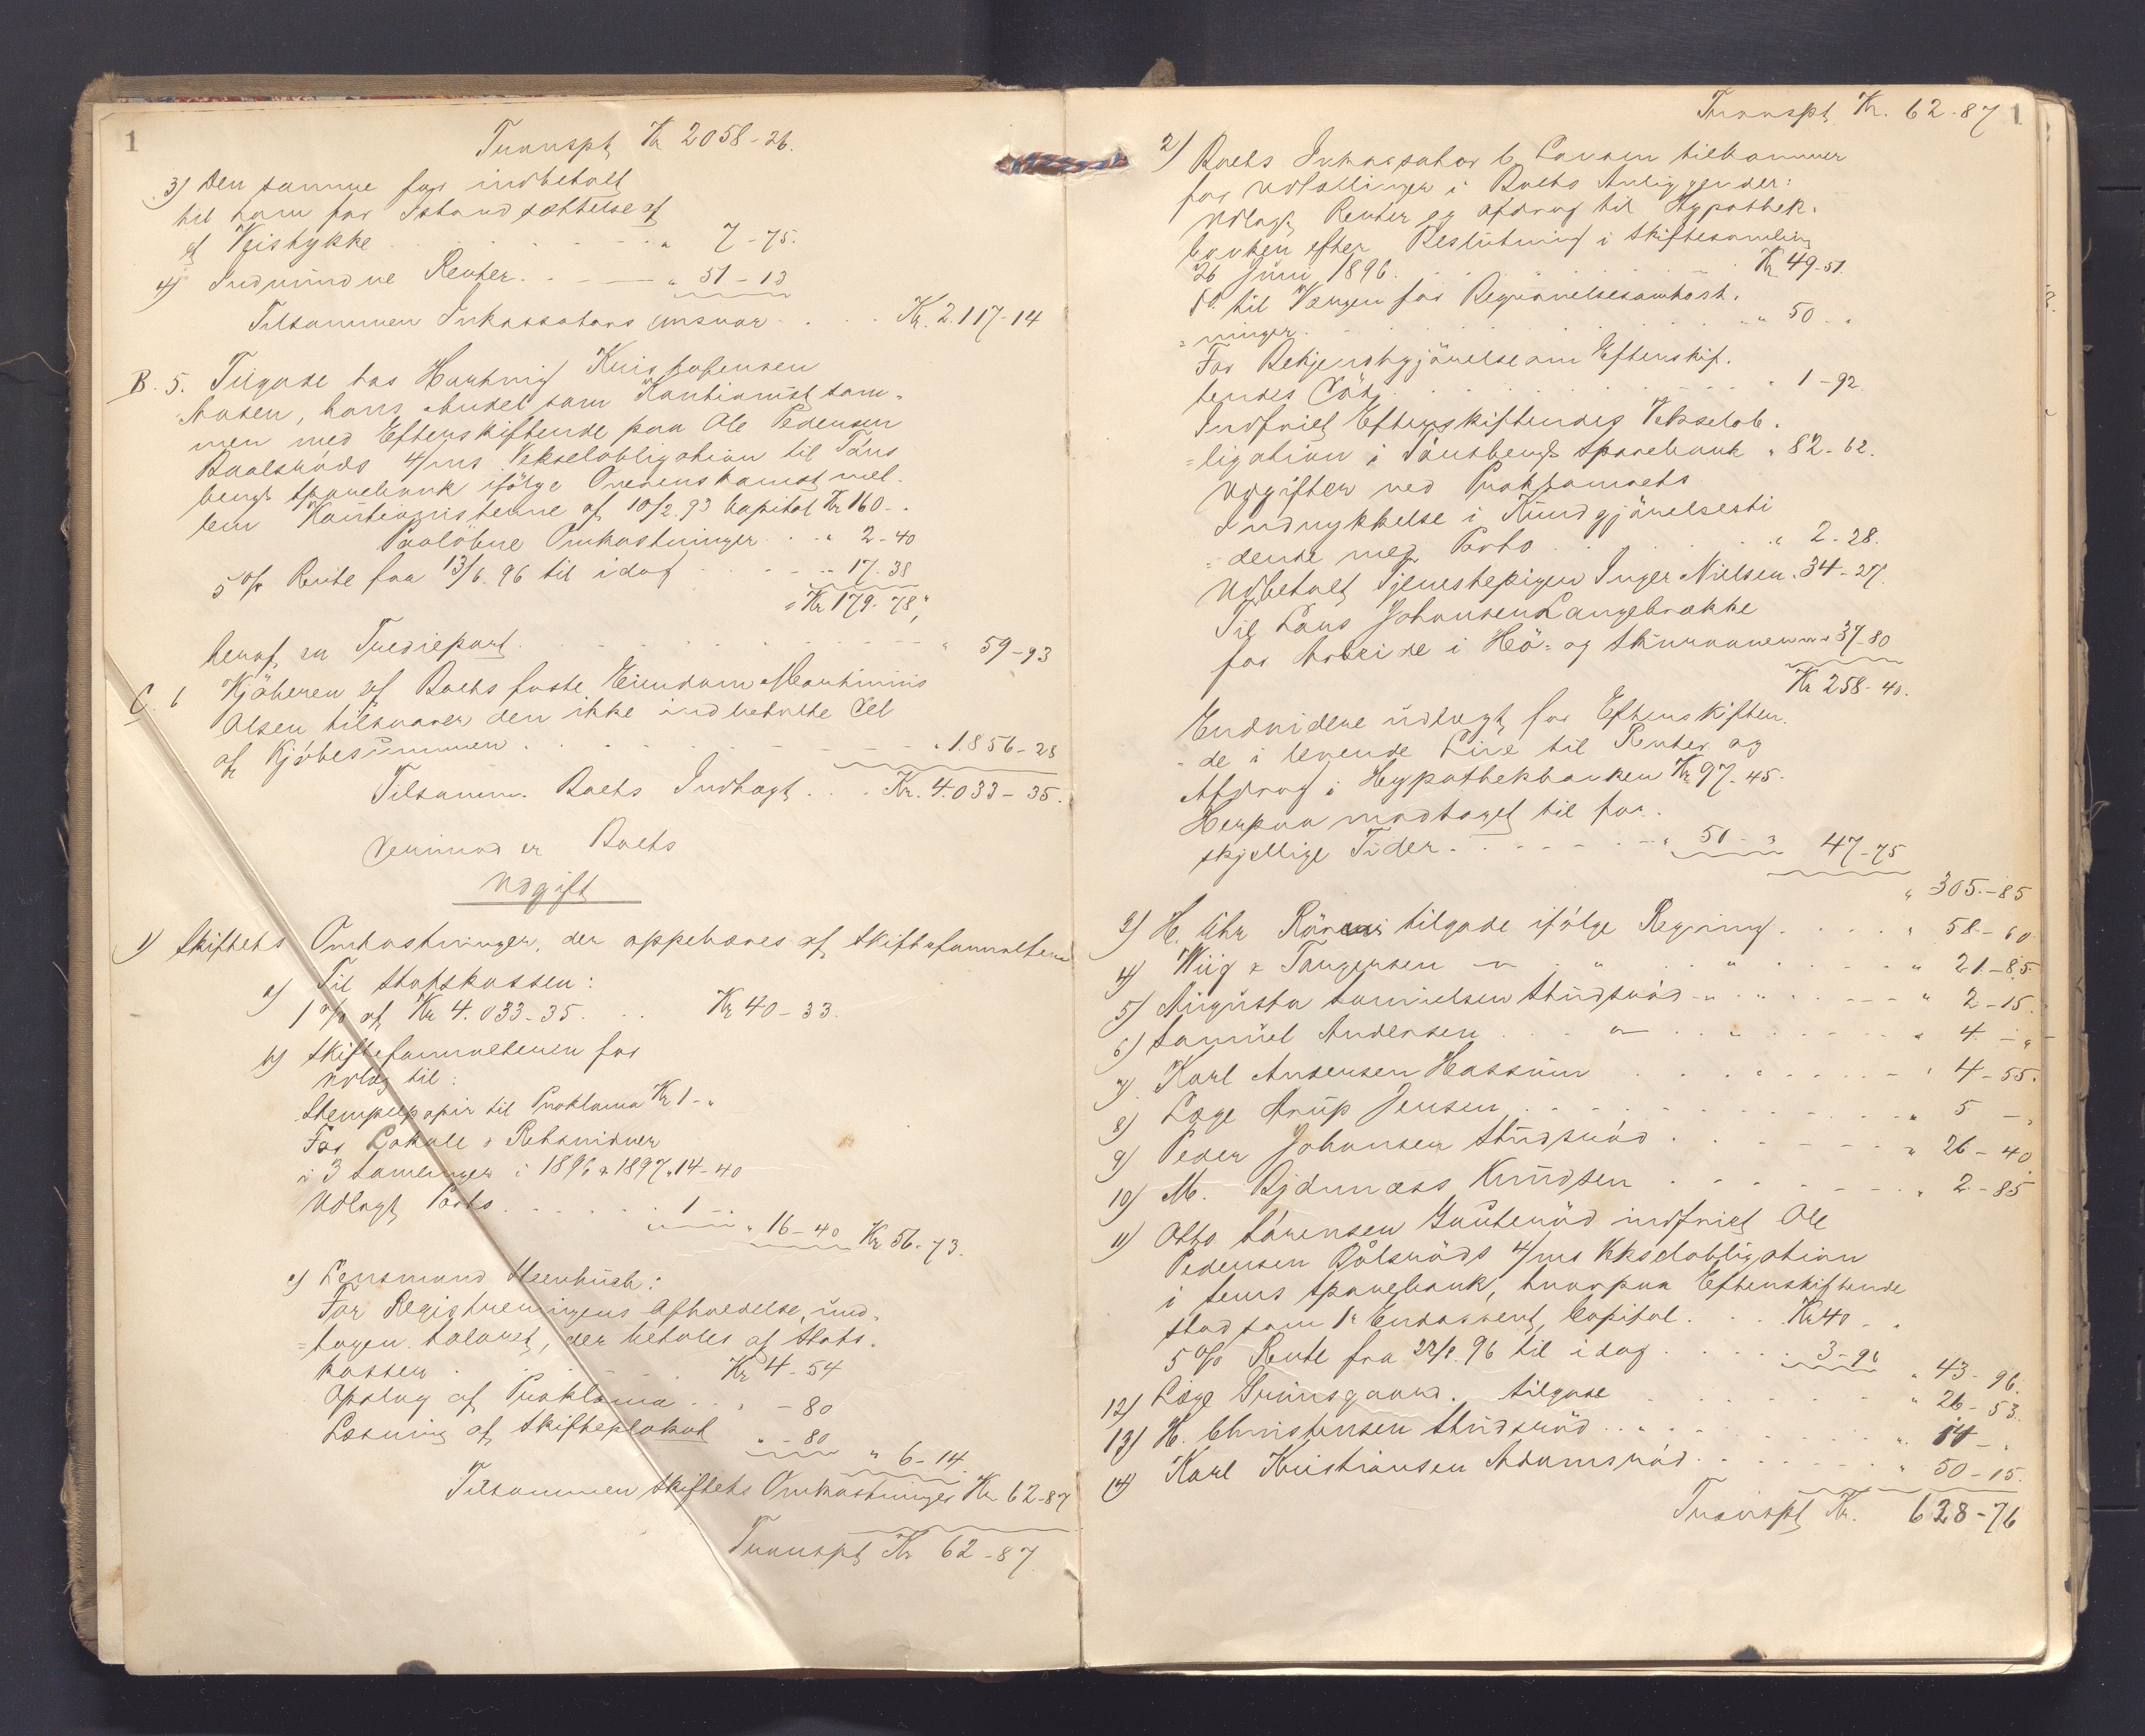 1
Transpt Kr 2058-26.
3) Den samme har indbetalt
til ham for Istandsættelse af
et Veistykke . . . . . . . . „ 7-75.
4) Indvundne Renter. . . — „ 51-13
Tilsammen Inkassators ansvar . . . Kr. 2.117-14
B. 5. Tilgode hos Hartvig Kristofersen
Aasen, hans Andel som Kautionist sam-
men med Efterskiftende paa Ole Pedersen
Baalsrøds 4/ms Vekselobligation til Tøns
bergs Sparebank ifølge Overenskomst mel-
lem Kautionisterne af 10/2.93 Capital Kr 160-„
Paaløbne Omkostninger . . „ 2-40
5% Rente fra 13/6.96 til idag . . . „ 17-38
Kr 179-78
heraf en Trediepart . . . . . . . . „ 59-93
C. 6 Kjøberen af Boets faste Eiendom Marthinius
Olsen tilsvarer den ikke indbetalte Del
af Kjøbesummen . . . . . . . . „ 1.856-28
Tilsamm. Boets Indtægt . . . Kr. 4.033-35.
Derimod er Boets
Udgift
1) Skiftets Omkostninger, der oppebæres af Skifteforvalteren
a) Til Statskassen:
1% af Kr 4.033-35. . . Kr 40-33.
b) Skifteforvalteren for
Udlæg til:
Stempelpapir til Proklama Kr 1-„
For Lokale & Retsvidner
i 3 Samlinger i 1896 & 1897 „ 14-40
Udlagt Porto . . . . . . 1-„
„ 16-40 Kr 56-73.
c) Lensmand Steenbuch:
For Registreringens Afholdelse, und-
=tagen Salæret, der betales af Stats-
kassen . . . . Kr 4-54
Opslag af Proklama . . „ -80
Læsning af Skifteplakat „ -80
„ 6-14.
Tilsammen Skiftets Omkostninger Kr 62-87
Transpt Kr 62-87
Transpt Kr. 62-87 1
2) Boets Inkassator C. Larsen tilkommer
for Udtællinger i Boets Anliggender:
Udlagt Renter og Afdrag til Hypothek-
banken efter Beslutning i Skiftesamling
26 Juni 1896 . . . . . . . Kr 49-51.
Do. til Vergen for Begravelsesomkost-
=ninger . . . . . . . . „ 50-„
For Bekjendtgjørelse om Efterskif-
tendes Død . . . . . . . . „ 1-92.
Indfriet Efterskiftendes Vekselob-
=ligation i Tønsbergs Sparebank „ 82-62.
Udgifter ved Proklamaets
Indrykkelse i Kundgjørelsesti
=dende med Porto . . . . . . „ 2-28.
Udbetalt Tjenestepigen Inger Nielsen „ 34-27.
Til Lars Johansen Langebrække
for Arbeide i Hø- og Skuraannen „ 37-80
Kr 258-40.
Endvidere udlagt for Efterskiften-
-de i levende Live til Renter og
Afdrag i Hypothekbanken Kr 97-45.
Herpaa modtaget til for-
skjellige Tider . . . . . „ 50-„ 47-75
„ 305-85
3) H. Chr tilgode ifølge Regning . . . . „ 58-60
4) Wiig & Torgersen — „ . . „ . . . „ 21-85.
5) Augusta Danielsen Studsrød - „ . . . . — „ 2-15.
6) Samuel Andersen . . . „ . . . . . „ 4-„
7) Karl Andersen Hassum . . . . . . . „ 4-55.
8) Læge Arup Jensen . . . . . . . . „ 5-„
9) Peder Johansen Studsrød . . . . . . „ 26-40
10) M. Bjdrnæss Knudsen . . . . . . „ 2-85
11) Otto Sørensen Gauterød indfriet Ole
Pedersen Bålsrøds 4/ms Vekselobligation
i Sems Sparebank, hvorpaa Efterskiftende
stod som 1e Endossent, Capital . . . Kr 40-„
5% Rente fra 22/8.96 til idag . . . . . 3-96 „ 43-96.
12) Læge Grunsgaard. tilgode . . . . . . „ 26-53.
13) H. Christensen Studsrød . . „ . . . . „ 14-„
14) Karl Kristiansen Adamsrød . . . . . „ 50-15.
Transpt Kr. 628-76